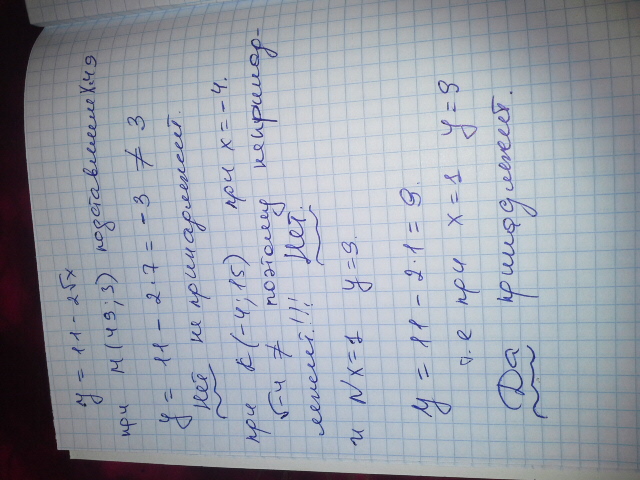 y = 11 - 2√x
при M(49; 3) подставляем x 49
y = 11 - 2·7 = -3 ≠ 3
Нет не принадлежит.
при K(-4; 15) при x = -4.
√-4 ≠ поэтому не принад-
лежит!!! Нет.
и N x=1 y=9.
y = 11 - 2·1 = 9.
т.е при x=1 y=9
Да принадлежит.